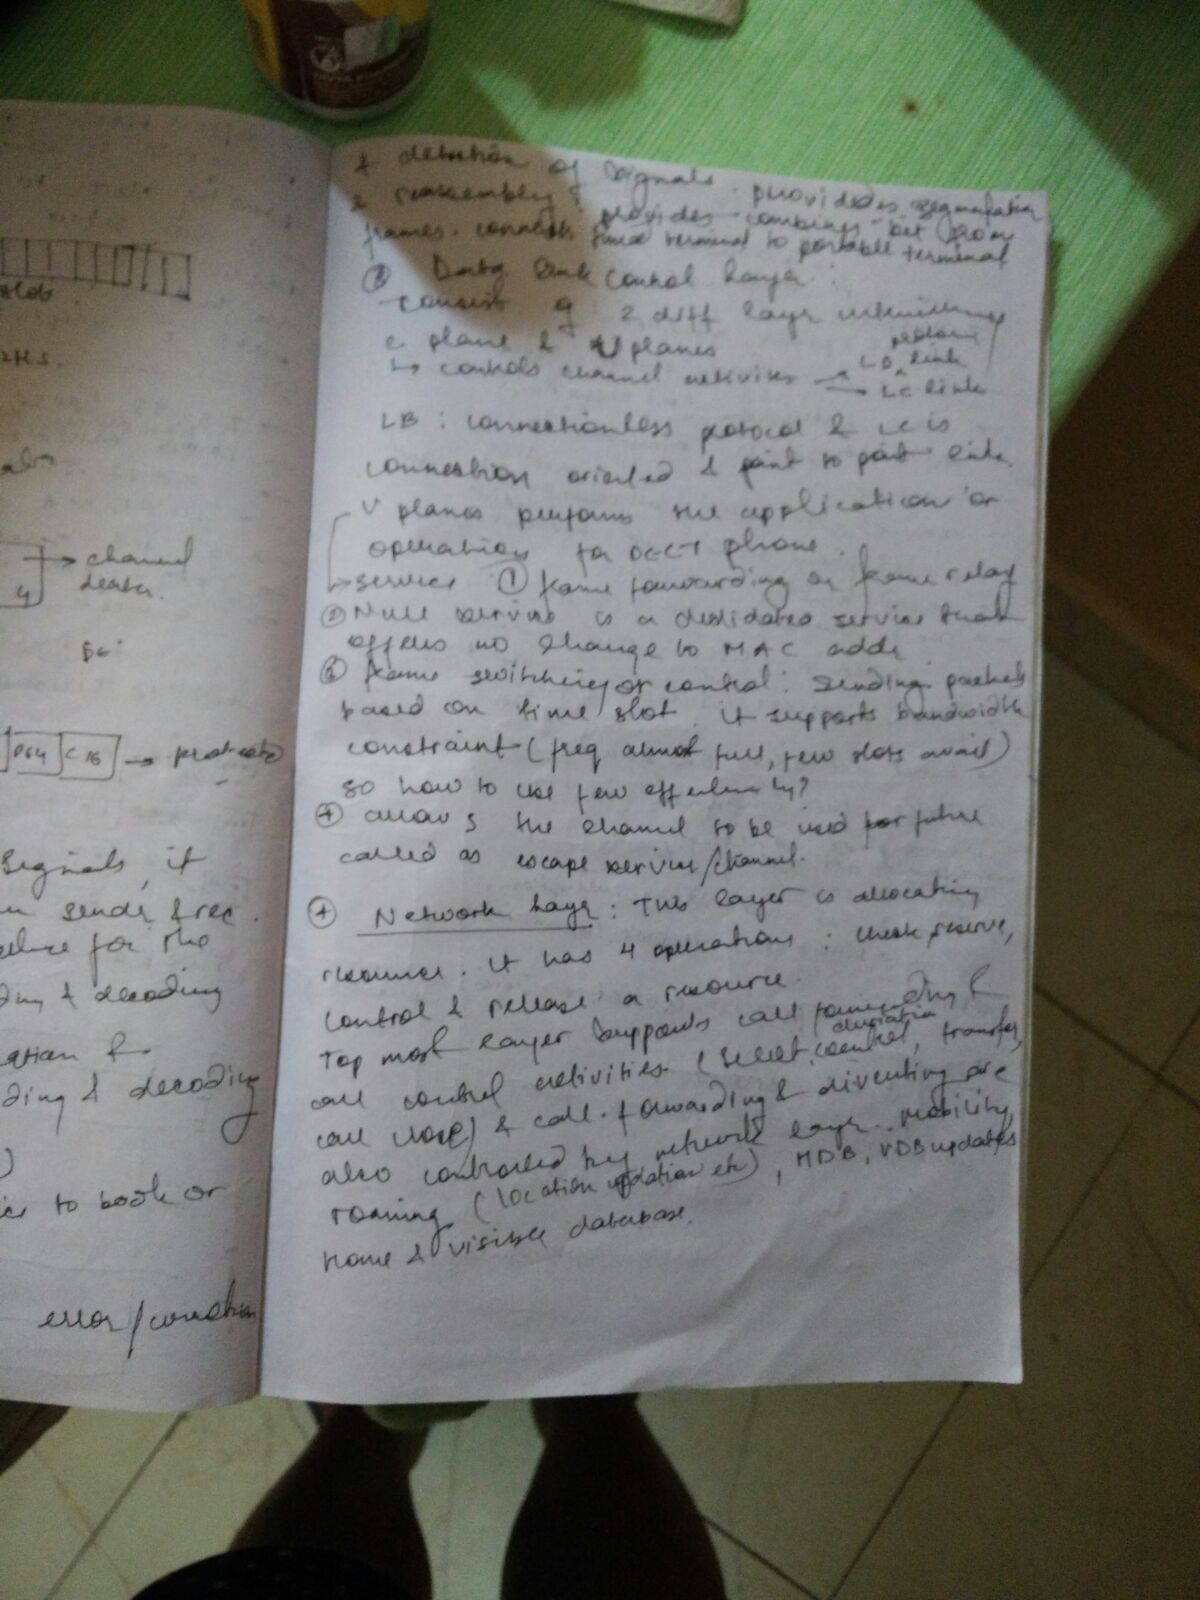 slob
2HS.
channel
4
PG4 C16 → 
Signals, it
sends & rec.
for the
& decoding
&
ding & decoding
to book or
error/
& detection of signals. provides segmentation
& reassembly. provides combines bit from
frames. connects fixed terminal to portable terminal
③ Data link Control Layer :
consist of 2 diff layer
c plane & U planes
↳ controls channel activities → LB link
→ LC link
LB : connectionless protocol & LC is
connection oriented & point to point link
U planes performs the application or
operations for DECT phone.
→ service ① frame forwarding or frame relay
② Null service is a dedidated service that
offers no change to MAC addr
③ frame switching or control : sending packets
based on time slot. it supports bandwidth
constraint (freq almost full, few slots avail)
so how to use few effectively?
④ allows the channel to be used for future
called as escape service/channel.
④ Network Layer : This layer is allocating
resource. it has 4 operations : check, reserve,
control & release a resource.
Top most layer supports call forwarding &
call control activities (select, control, transfer,
call close) & call forwarding & diverting are
also controlled by network layer. mobility,
roaming (location updation etc), HDB, VDB updates
home & visitor database.